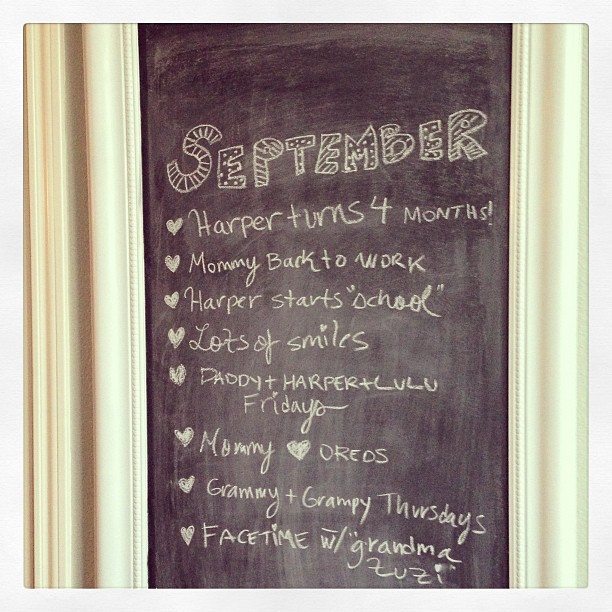 SEPTEMBER
♥ Harper turns 4 MONTHS!
♥ Mommy Back to WORK
♥ Harper starts "school"
♥ Lots of smiles
♥ DADDY + HARPER + LULU
Fridays
♥ Mommy ♥ OREOS
♥ Grammy + Grampy Thursdays
♥ FACETIME w/ "grandma
zuzi"